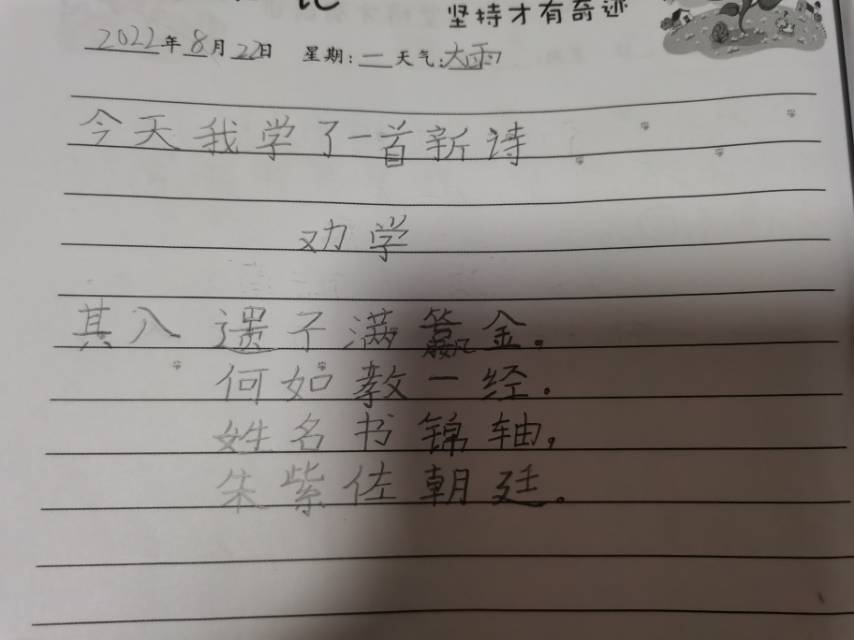 记
坚持才有奇迹
2022年8月22日 星期:一 天气:大雨
今天我学了一首新诗
劝学
其八 遗子满籯金。
何如教一经.
姓名书锦轴,
朱紫佐朝廷。